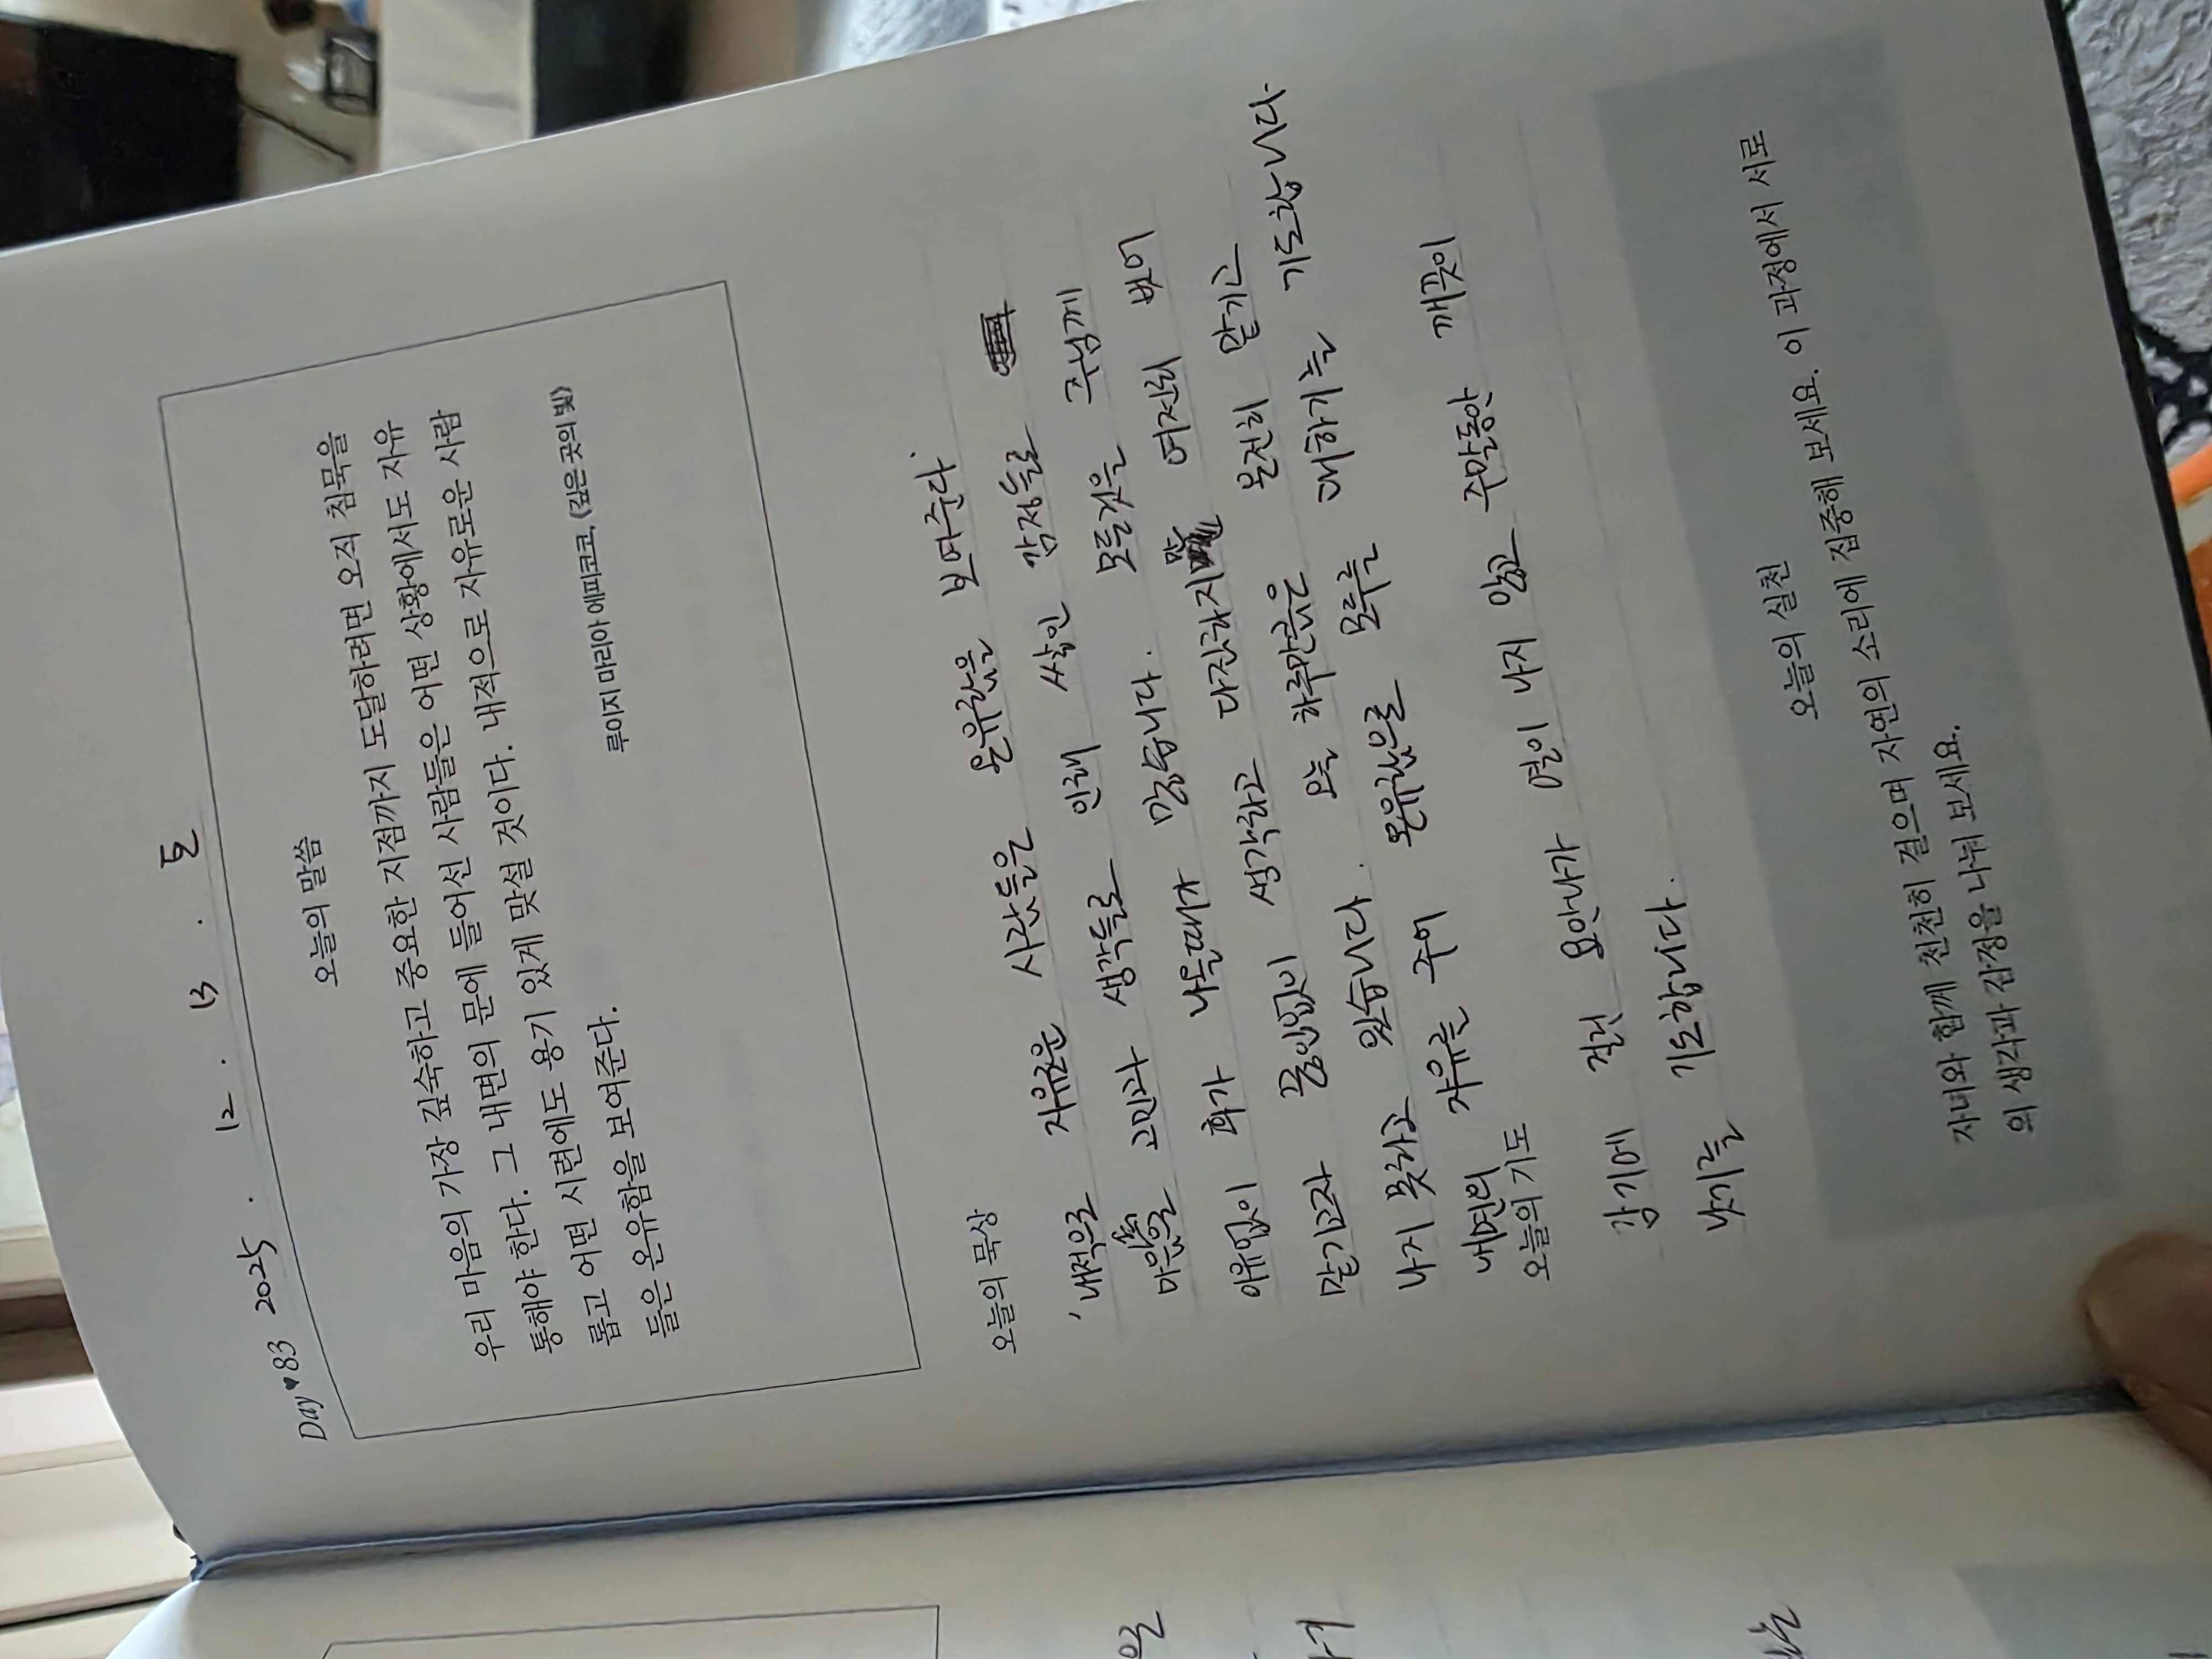 Day♥83 2025. 12. 13. 토
오늘의 말씀
우리 마음의 가장 깊숙하고 중요한 지점까지 도달하려면 오직 침묵을
통해야 한다. 그 내면의 문에 들어선 사람들은 어떤 상황에서도 자유
롭고 어떤 시련에도 용기 있게 맞설 것이다. 내적으로 자유로운 사람
들은 온유함을 보여준다.
루이지 마리아 에피코코, 《깊은 곳의 빛》
오늘의 묵상
'내적으로 자유로운 사람들은 온유함을 보여준다'
마음속 고민과 생각들로 인해 쌓인 감정들로
이유없이 화가 나올때가 많습니다. 모든것을 주님께
맡기고자 끊임없이 생각하고 다짐하지만 여전히 벗어
나지 못하고 있습니다. 오늘 하루만큼은 온전히 맡기고
내면의 자유를 주어 온유함으로 모두를 대하기를 기도합니다
오늘의 기도
감기에 걸린 요안나가 열이 나지 않고 주말동안 깨끗이
낫기를 기도합니다.
오늘의 실천
자녀와 함께 천천히 걸으며 자연의 소리에 집중해 보세요. 이 과정에서 서로
의 생각과 감정을 나눠 보세요.